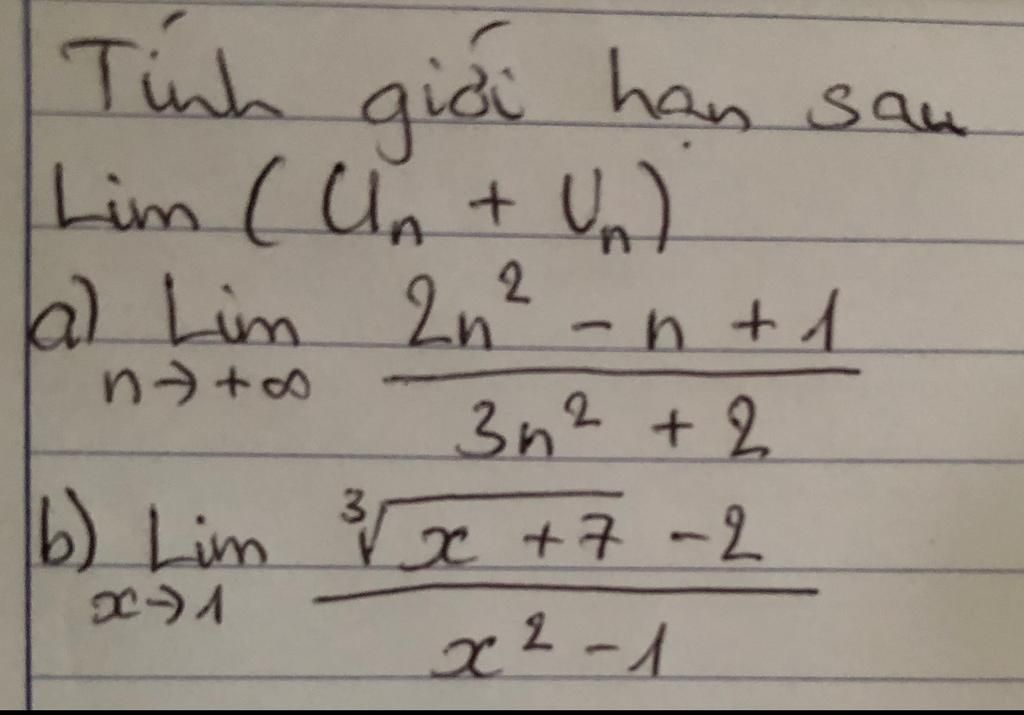 Tính giới hạn sau
Lim ( Un + Un )
a) Lim 2n² - n + 1
n → +∞ 3n² + 2
b) Lim ³√x + 7 - 2
x → 1 x² - 1